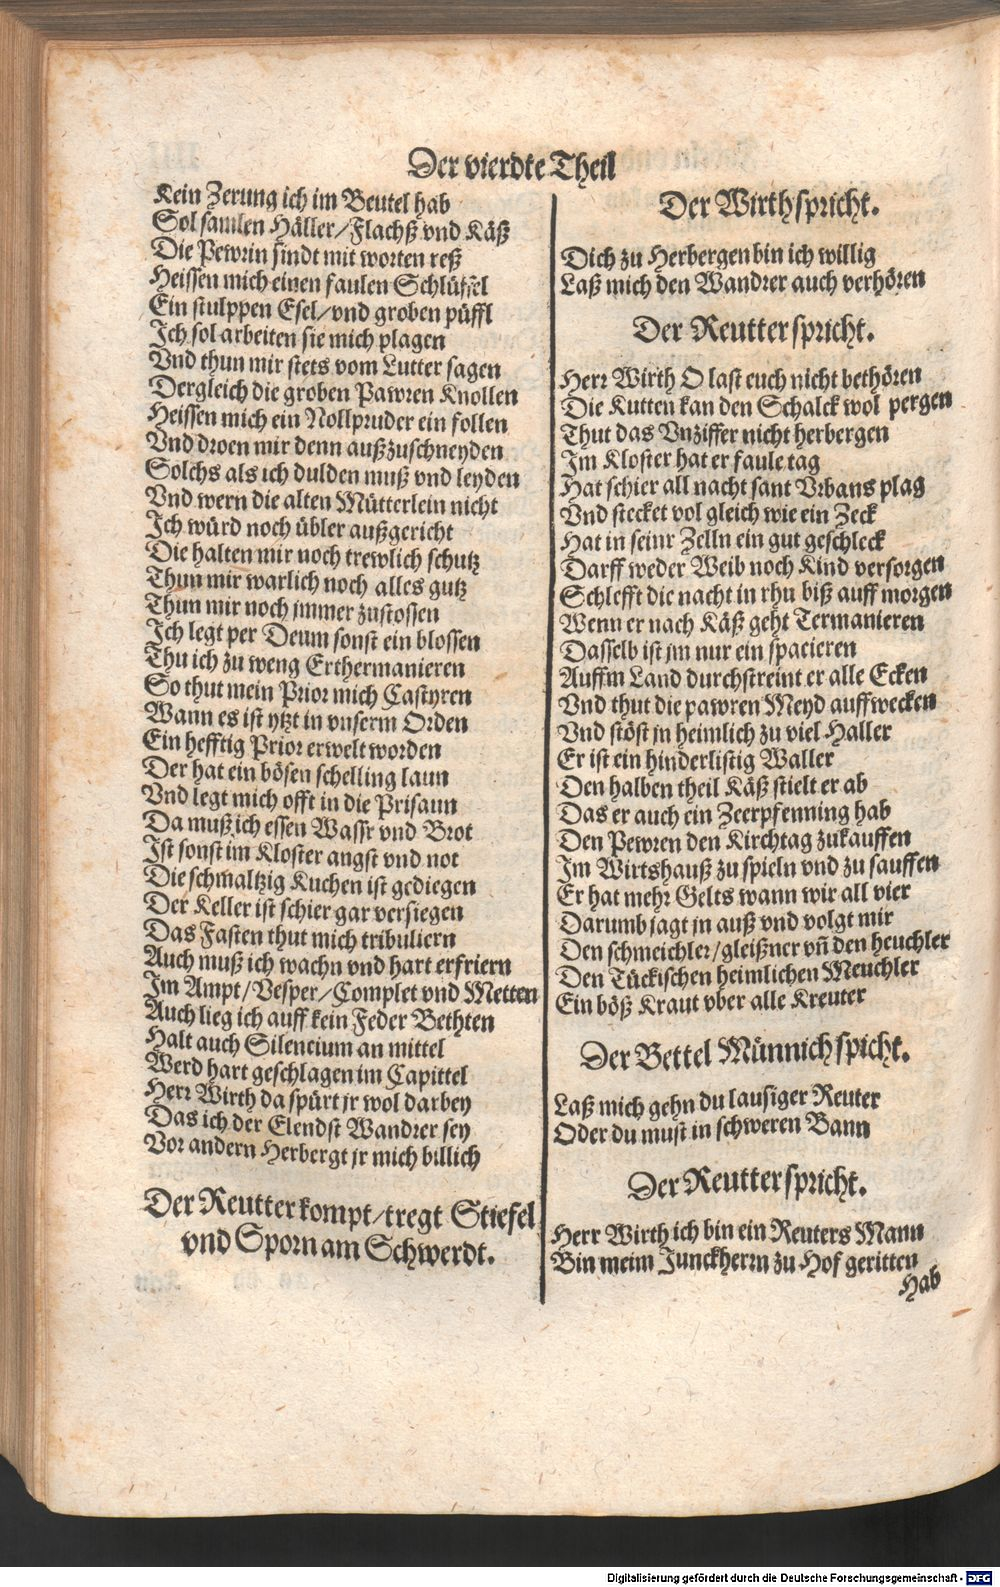 Der vierdte Theil
Kein Zerung ich im Beutel hab
Sol samlen Häller/Flachß vnd Käß
Die Pewrin sindt mit worten reß
Heissen mich einen faulen Schlüssel
Ein stulppen Esel/vnd groben püffl
Ich sol arbeiten sie mich plagen
Vnd thun mir stets vom Lutter sagen
Dergleich die groben Pawren Knollen
Heissen mich ein Nollpruder ein follen
Vnd droen mir denn außzuschneyden
Solchs als ich dulden muß vnd leyden
Vnd wern die alten Mütterlein nicht
Ich würd noch übler außgericht
Die halten mir noch trewlich schutz
Thun mir warlich noch alles gutz
Thun mir noch jmmer zustossen
Ich legt per Deum sonst ein blossen
Thu ich zu weng Erthermanieren
So thut mein Prior mich Castyren
Wann es ist ytzt in vnserm Orden
Ein hefftig Prior erwelt worden
Der hat ein bösen schelling laun
Vnd legt mich offt in die Prisaun
Da muß ich essen Wassr vnd Brot
Ist sonst im Kloster angst vnd not
Die schmaltzig Kuchen ist gediegen
Der Keller ist schier gar versiegen
Das Fasten thut mich tribuliern
Auch muß ich wachn vnd hart erfriern
Im Ampt/Vesper/Complet vnd Metten
Auch lieg ich auff kein Feder Bethten
Halt auch Silencium an mittel
Werd hart geschlagen im Capittel
Herr Wirth da spürt jr wol darbey
Das ich der Elendst Wandrer sey
Vor andern Herbergt jr mich billich
Der Reutter kompt/tregt Stiefel
vnd Sporn am Schwerdt.
Der Wirth spricht.
Dich zu Herbergen bin ich willig
Laß mich den Wandrer auch verhören
Der Reutter spricht.
Herr Wirth O last euch nicht bethören
Die Kutten kan den Schalck wol pergen
Thut das Vnziffer nicht herbergen
Im Kloster hat er faule tag
Hat schier all nacht sant Vrbans plag
Vnd stecket vol gleich wie ein Zeck
Hat in seinr Zelln ein gut geschleck
Darff weder Weib noch Kind versorgen
Schlefft die nacht in rhu biß auff morgen
Wenn er nach Käß geht Termanieren
Dasselb ist jm nur ein spacieren
Auffm Land durchstreint er alle Ecken
Vnd thut die pawren Meyd auffwecken
Vnd stöst jn heimlich zu viel Haller
Er ist ein hinderlistig Waller
Den halben theil Käß stielt er ab
Das er auch ein Zeerpfenning hab
Den Pewren den Kirchtag zukauffen
Im Wirtshauß zu spieln vnd zu sauffen
Er hat mehr Gelts wann wir all vier
Darumb jagt jn auß vnd volgt mir
Den schmeichler/gleißner vñ den heuchler
Den Tückischen heimlichen Meuchler
Ein böß Kraut vber alle Kreuter
Der Bettel Münnich spicht.
Laß mich gehn du lausiger Reuter
Oder du must in schweren Bann
Der Reutter spricht.
Herr Wirth ich bin ein Reuters Mann
Bin meim Junckherrn zu Hof geritten
Hab
Digitalisierung gefördert durch die Deutsche Forschungsgemeinschaft - DFG